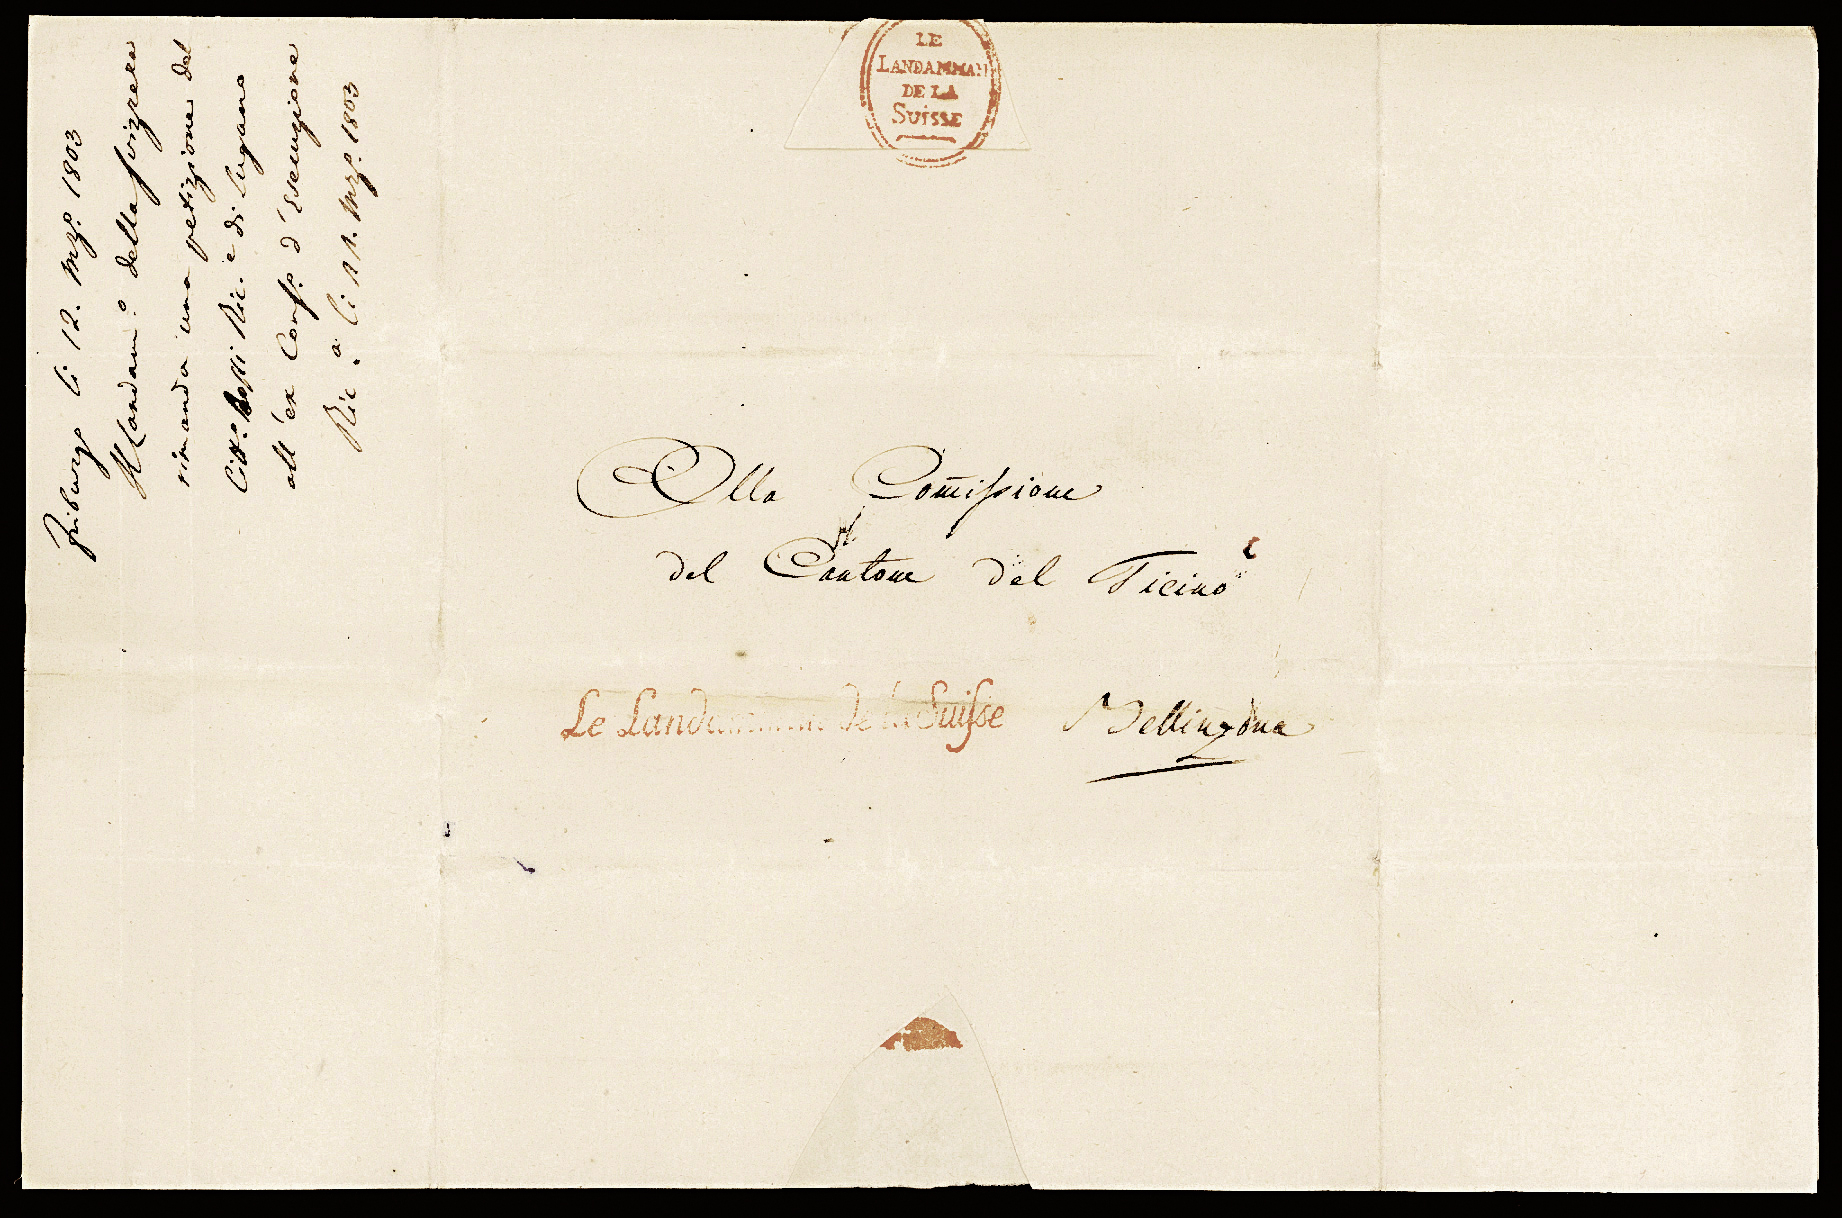 LE
LANDAMMAN
DE LA
SUISSE
Friburgo li 12. Mzo. 1803
Il Landamo. della Svizzera
rimanda una petizione del
Citto. Rossi Ric. e di Lugano
all'ex Conso. d'Esecuzione
Rica. li 11. Mzo. 1803
Alla Com̄issione
del Cantone del Ticino
Le Landamman de la Suisse
Bellinzona